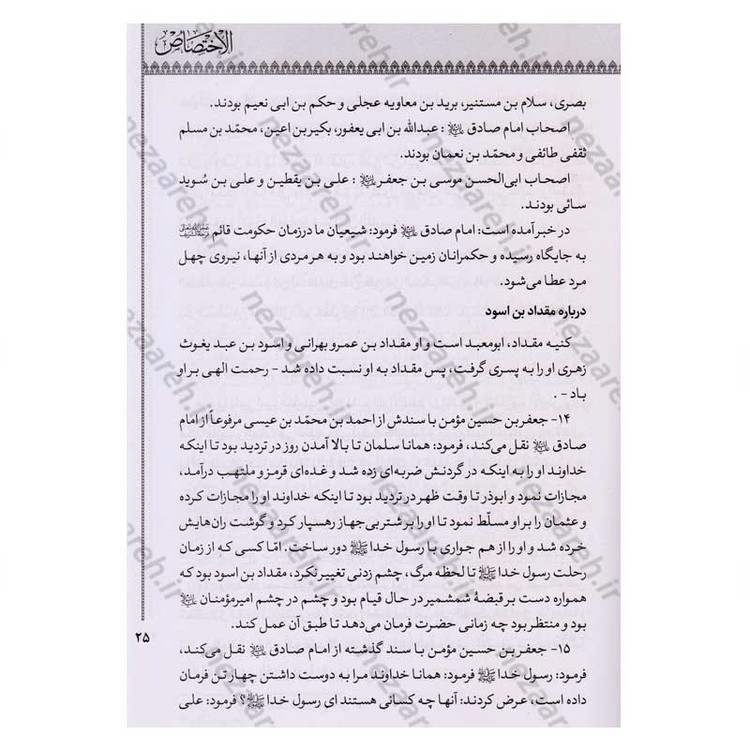 الاختصاص
بصری، سلام بن مستنیر، برید بن معاویه عجلی و حکم بن ابی نعیم بودند.
اصحاب امام صادق علیه‌السلام: عبدالله بن ابی یعفور، بکیر بن اعین، محمّد بن مسلم
ثقفی طائفی و محمّد بن نعمان بودند.
اصحاب ابی‌الحسن موسی بن جعفر علیه‌السلام: علی بن یقطین و علی بن سُوید
سائی بودند.
در خبر آمده است: امام صادق علیه‌السلام فرمود: شیعیان ما درزمان حکومت قائم
به جایگاه رسیده و حکمرانان زمین خواهند بود و به هر مردی از آنها، نیروی چهل
مرد عطا می‌شود.
درباره مقداد بن اسود
کنیه مقداد، ابومعبد است و او مقداد بن عمرو بهرانی و اسود بن عبد یغوث
زهری او را به پسری گرفت، پس مقداد به او نسبت داده شد - رحمت الهی بر او
باد - .
۱۴- جعفر بن حسین مؤمن با سندش از احمد بن محمّد بن عیسی مرفوعاً از امام
صادق علیه‌السلام نقل می‌کند، فرمود: همانا سلمان تا بالا آمدن روز در تردید بود تا اینکه
خداوند او را به اینکه در گردنش ضربه‌ای زده شد و غده‌ای قرمز و ملتهب درآمد،
مجازات نمود و ابوذر تا وقت ظهر در تردید بود تا اینکه خداوند او را مجازات کرده
و عثمان را بر او مسلّط نمود تا او را بر شتر بی‌جهاز رهسپار کرد و گوشت ران‌هایش
خرده شد و او را از هم جواری با رسول خدا ﷺ دور ساخت. امّا کسی که از زمان
رحلت رسول خدا ﷺ تا لحظه مرگ، چشم زدنی تغییر نکرد، مقداد بن اسود بود که
همواره دست بر قبضهٔ شمشیر در حال قیام بود و چشم در چشم امیرمؤمنان علیه‌السلام
بود و منتظر بود چه زمانی حضرت فرمان می‌دهد تا طبق آن عمل کند.
۱۵- جعفر بن حسین مؤمن با سند گذشته از امام صادق علیه‌السلام نقل می‌کند،
فرمود: رسول خدا ﷺ فرمود: همانا خداوند مرا به دوست داشتن چهار تن فرمان
داده است، عرض کردند: آنها چه کسانی هستند ای رسول خدا ﷺ؟ فرمود: علی
۲۵
nezaareh.ir